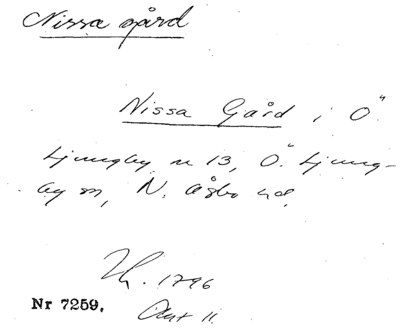 Nissa gård
Nissa Gård i Ö.
Ljungby n 13, Ö. Ljung-
by sn, N. Åsbo hd.
1796
Nr 7259. Akt 11.